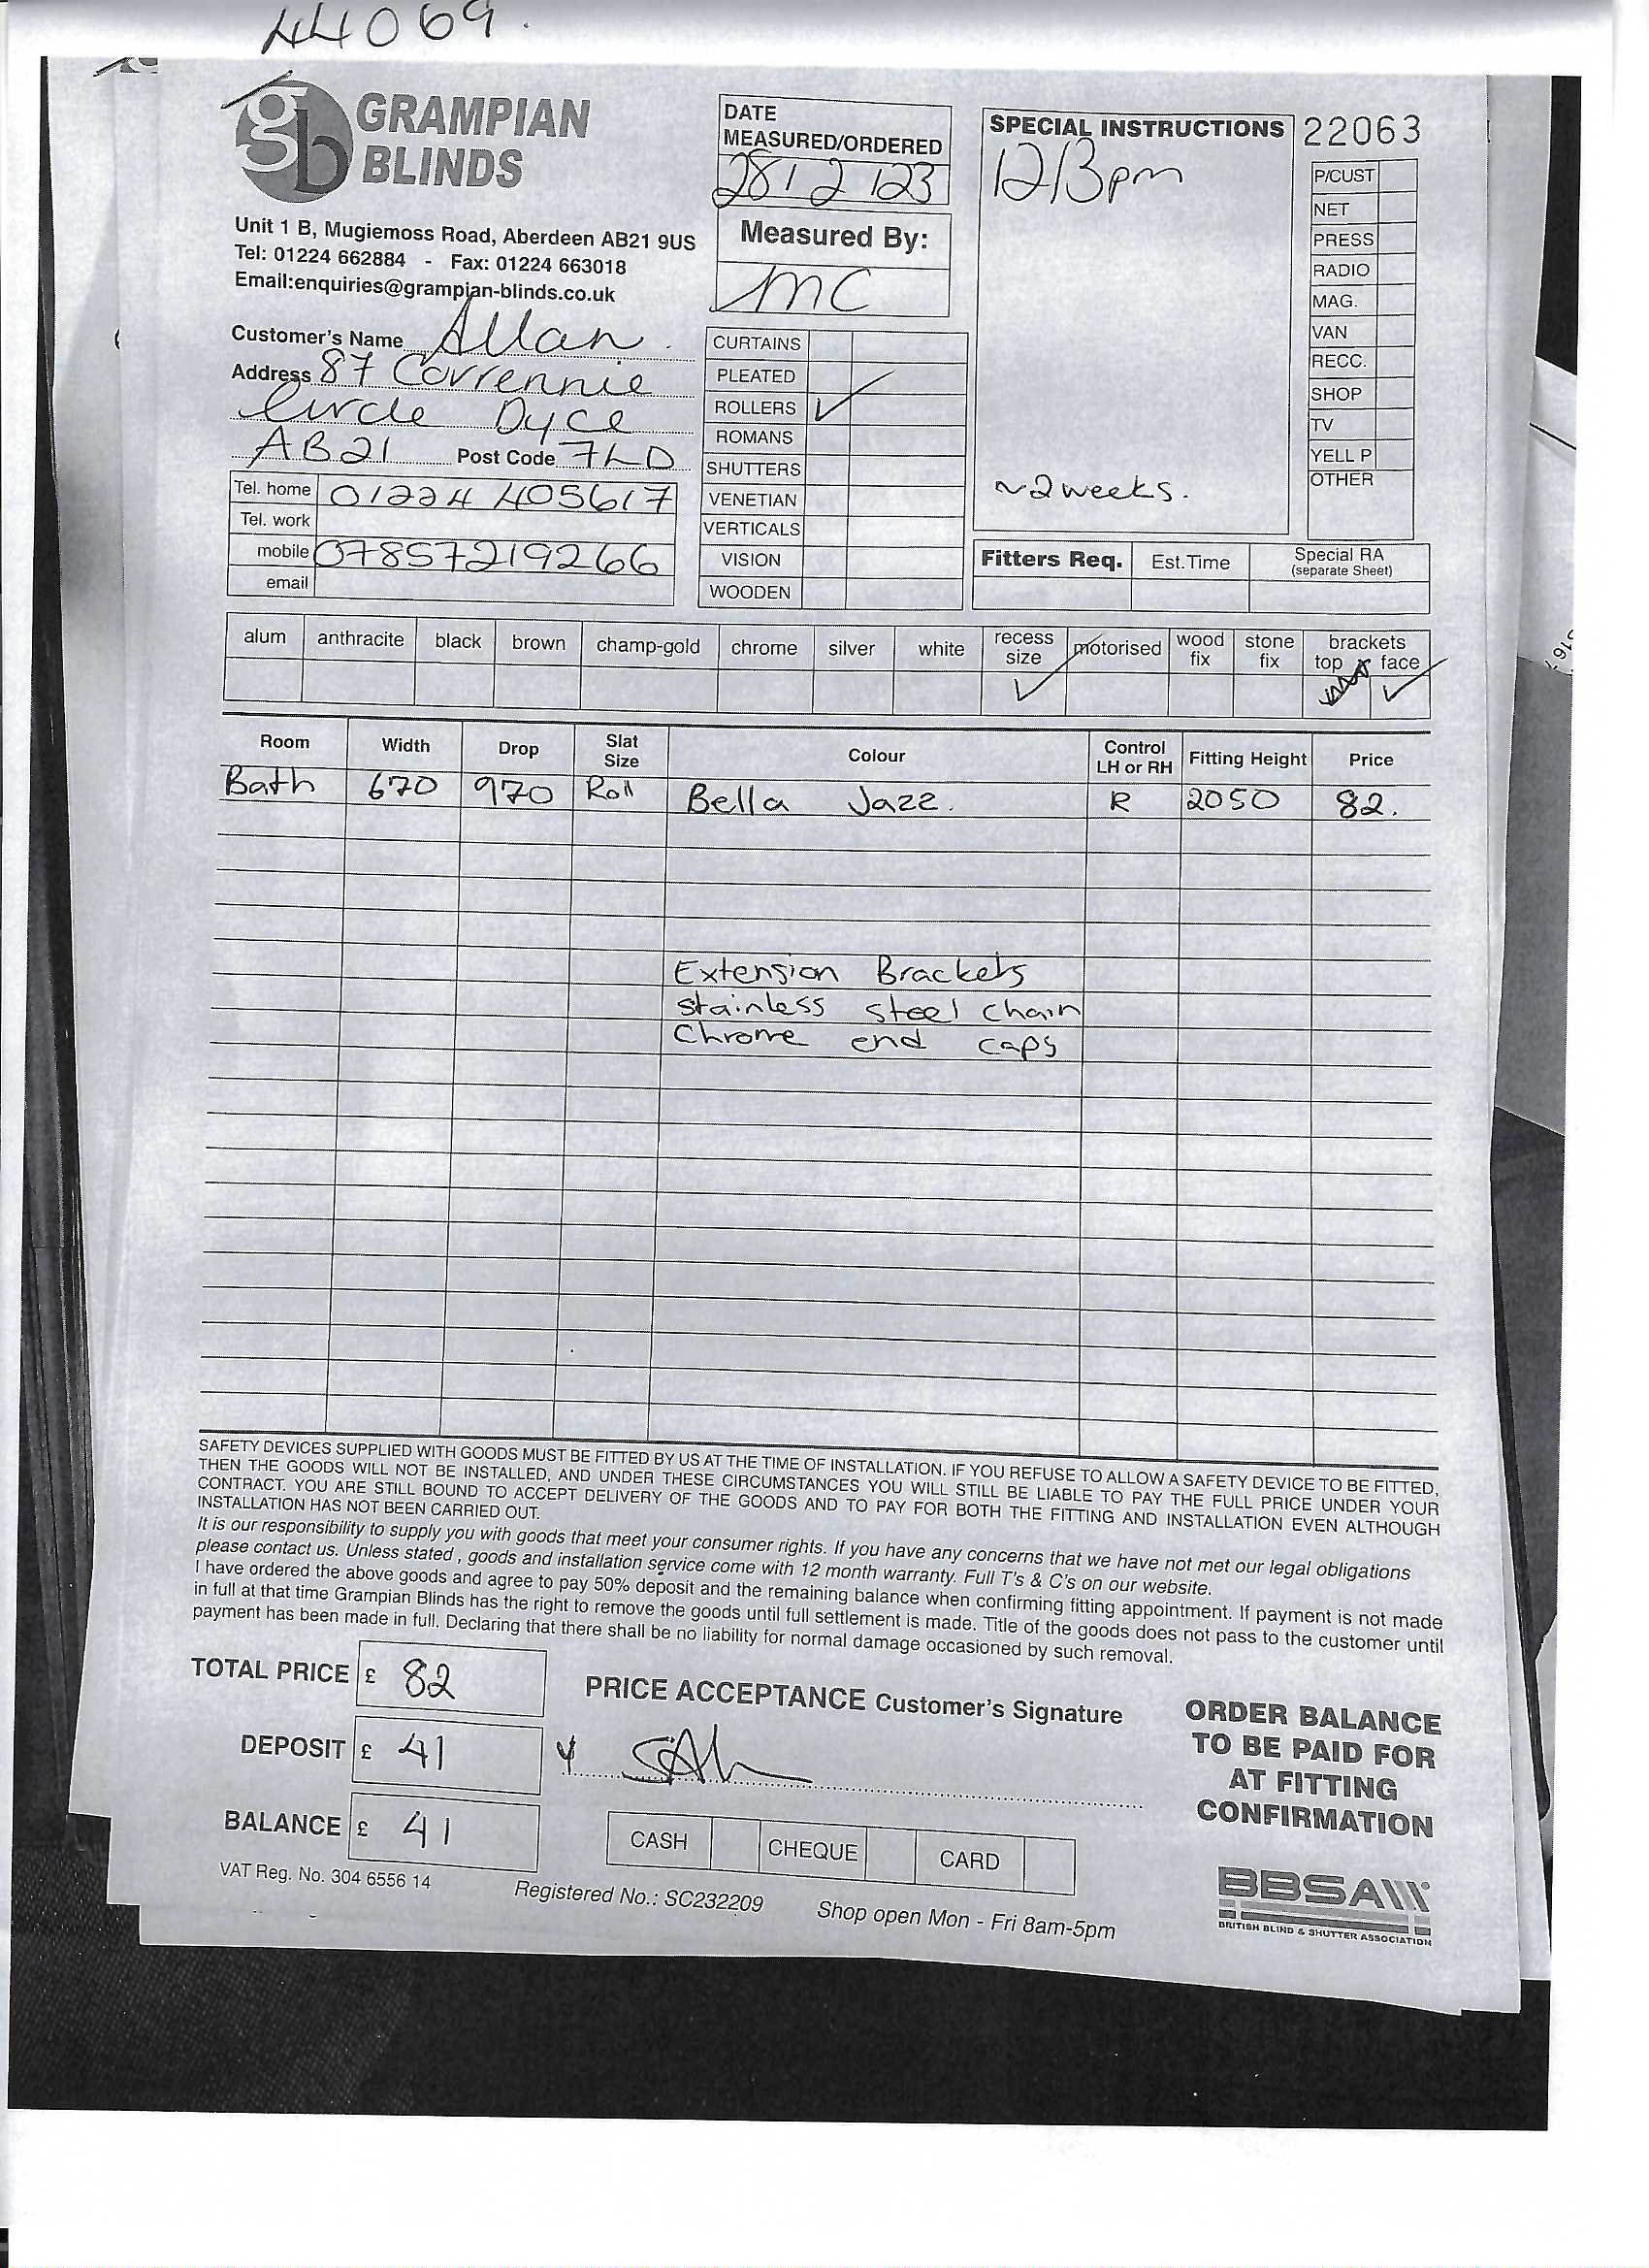 44069.
GRAMPIAN
BLINDS
Unit 1 B, Mugiemoss Road, Aberdeen AB21 9US
Tel: 01224 662884 - Fax: 01224 663018
Email:enquiries@grampian-blinds.co.uk
DATE
MEASURED/ORDERED
28/2/23
Measured By:
MC
SPECIAL INSTRUCTIONS
12/3pm
~2weeks.
22063
P/CUST
NET
PRESS
RADIO
MAG.
VAN
RECC.
SHOP
TV
YELL P
OTHER
Customer's Name Allan.
Address 87 Corrennie
Circle Dyce
AB21 Post Code 7LD
Tel. home 01224 405617
Tel. work
mobile 07857219266
email
CURTAINS
PLEATED
ROLLERS ✓
ROMANS
SHUTTERS
VENETIAN
VERTICALS
VISION
WOODEN
Fitters Req. Est.Time Special RA
(separate Sheet)
alum anthracite black brown champ-gold chrome silver white recess size motorised wood fix stone fix brackets
top face
✓ ✓
Room Width Drop Slat Size Colour Control LH or RH Fitting Height Price
Bath 670 970 Roll Bella Jazz. R 2050 82.
Extension Brackets
Stainless steel chain
Chrome end caps
SAFETY DEVICES SUPPLIED WITH GOODS MUST BE FITTED BY US AT THE TIME OF INSTALLATION. IF YOU REFUSE TO ALLOW A SAFETY DEVICE TO BE FITTED,
THEN THE GOODS WILL NOT BE INSTALLED, AND UNDER THESE CIRCUMSTANCES YOU WILL STILL BE LIABLE TO PAY THE FULL PRICE UNDER YOUR
CONTRACT. YOU ARE STILL BOUND TO ACCEPT DELIVERY OF THE GOODS AND TO PAY FOR BOTH THE FITTING AND INSTALLATION EVEN ALTHOUGH
INSTALLATION HAS NOT BEEN CARRIED OUT.
It is our responsibility to supply you with goods that meet your consumer rights. If you have any concerns that we have not met our legal obligations
please contact us. Unless stated, goods and installation service come with 12 month warranty. Full T's & C's on our website.
I have ordered the above goods and agree to pay 50% deposit and the remaining balance when confirming fitting appointment. If payment is not made
in full at that time Grampian Blinds has the right to remove the goods until full settlement is made. Title of the goods does not pass to the customer until
payment has been made in full. Declaring that there shall be no liability for normal damage occasioned by such removal.
TOTAL PRICE £ 82
DEPOSIT £ 41
BALANCE £ 41
PRICE ACCEPTANCE Customer's Signature
CASH CHEQUE CARD
ORDER BALANCE
TO BE PAID FOR
AT FITTING
CONFIRMATION
VAT Reg. No. 304 6556 14
Registered No.: SC232209
Shop open Mon - Fri 8am-5pm
BBSA
BRITISH BLIND & SHUTTER ASSOCIATION